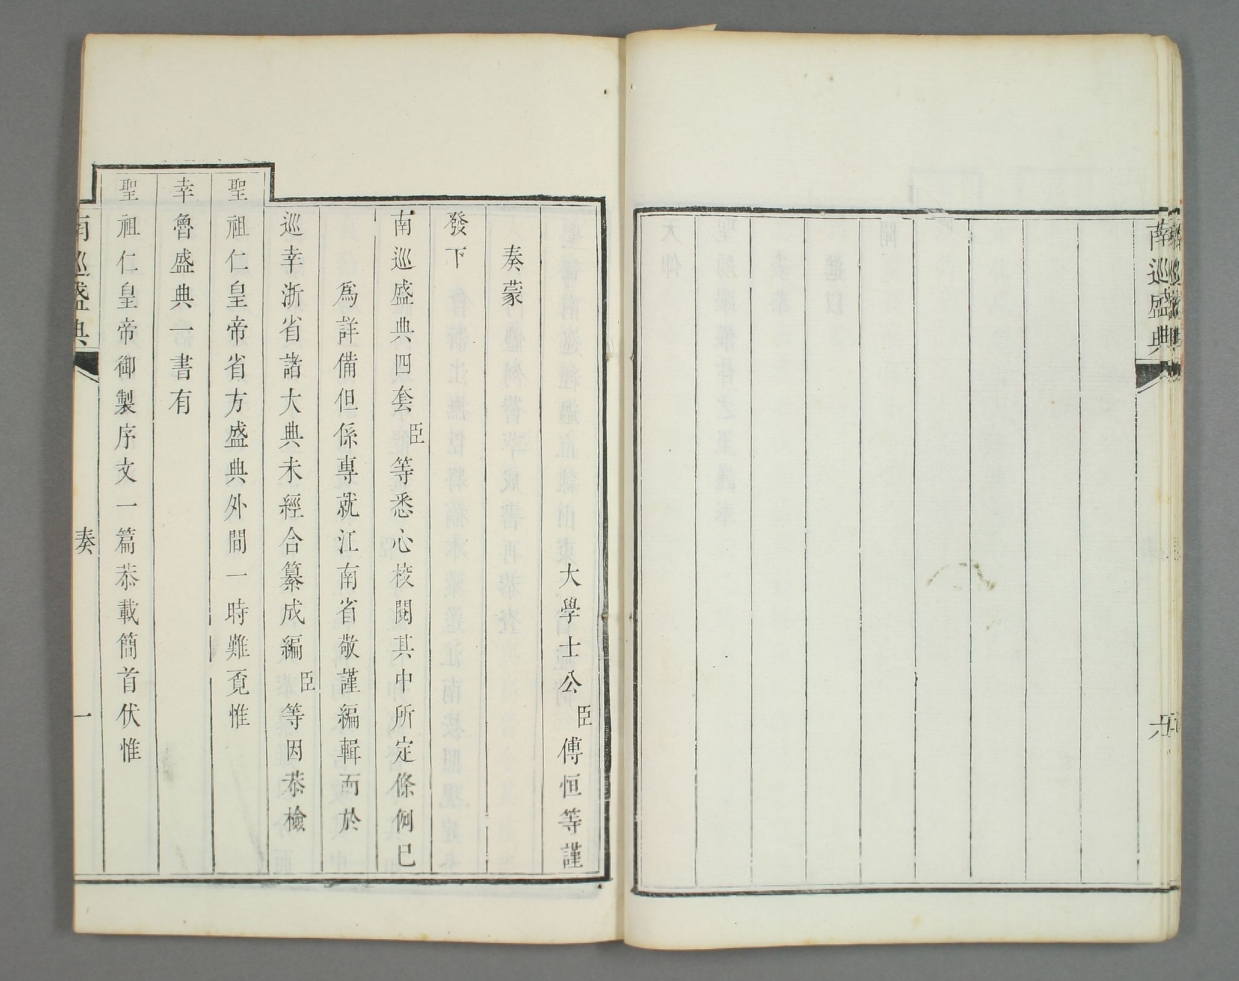 南巡盛典
六
大學士公臣傅恒等謹
奏蒙
發下
南巡盛典四套臣等悉心校閱其中所定條例已
爲詳備但係專就江南省敬謹編輯而於
巡幸浙省諸大典未經合纂成編臣等因恭檢
聖祖仁皇帝省方盛典外間一時難覓惟
幸魯盛典一書有
聖祖仁皇帝御製序文一篇恭載簡首伏惟
南巡盛典
奏
一